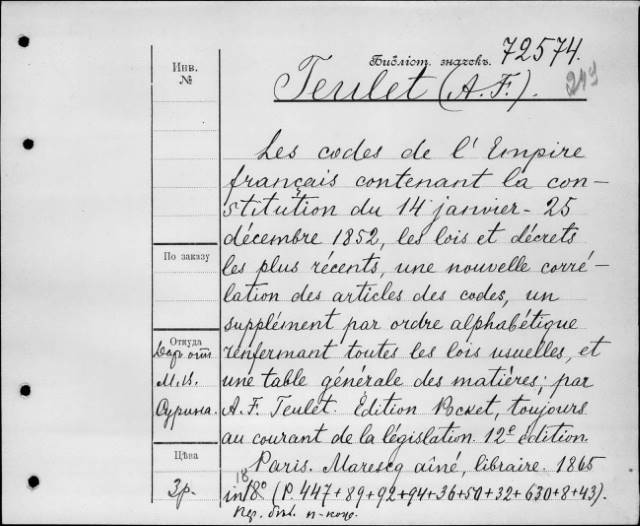 Библіот. значекъ. 72574.
Teulet (A. F.).
249
Инв.
№
Les codes de l'Empire
français contenant la con-
stitution du 14 janvier - 25
décembre 1852, les lois et décrets
les plus récents, une nouvelle corré-
lation des articles des codes, un
supplément par ordre alphabétique
renfermant toutes les lois usuelles, et
une table générale des matières; par
A. F. Teulet. Édition Pocket, toujours
au courant de la législation. 12e édition.
Paris. Marescq aîné, libraire. 1865
in 18o (P. 447+89+92+94+36+50+32+630+8+43).
18
По заказу
Откуда
Даръ отъ
М. В.
Сурина.
Цѣна
3р.